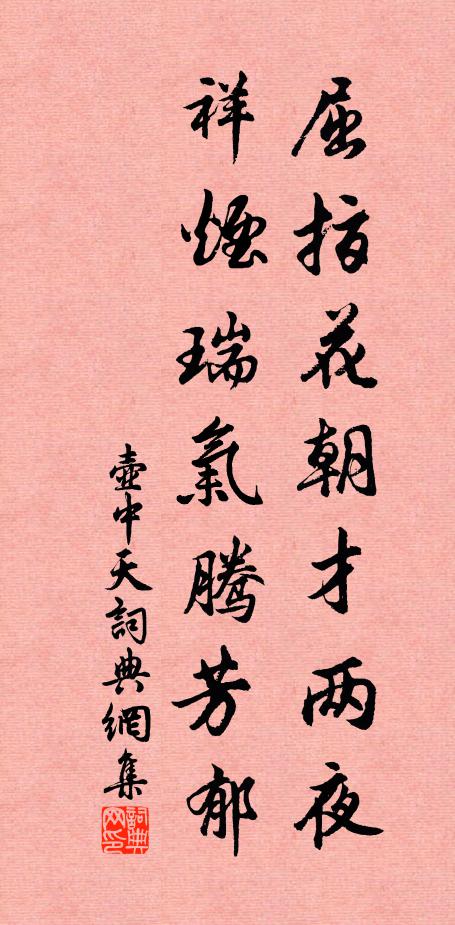 屈指花朝才两夜
祥煙瑞氣騰芳郁
壺中天詞典網集
詞典网印